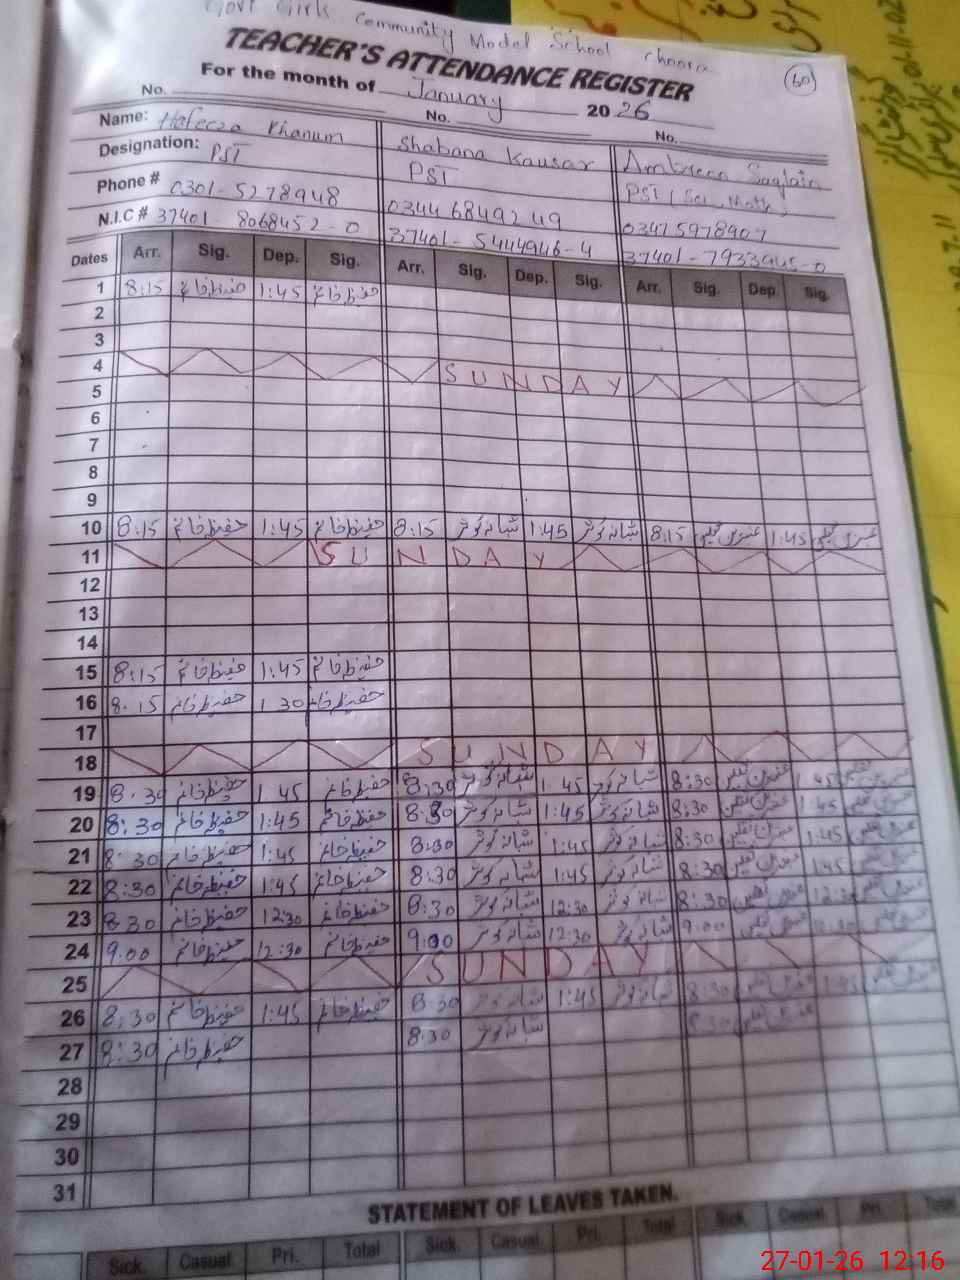 Govt Girls Community Model School Choora
TEACHER'S ATTENDANCE REGISTER
60
For the month of January 2026
No. No. No.
Name: Hafeeza Khanum Shabana Kausar Ambreen Saqlain
Designation: PST PST PST (Sci, Math)
Phone # 0301-5278948 03446849249 03475978907
N.I.C # 37401-8068452-0 37401-5444946-4 37401-7933945-0
Dates Arr. Sig. Dep. Sig. Arr. Sig. Dep. Sig. Arr. Sig. Dep. Sig.
1 8:15 حفیظہ خانم 1:45 حفیظہ خانم
2
3
4 SUNDAY
5
6
7
8
9
10 8:15 حفیظہ خانم 1:45 حفیظہ خانم 8:15 شبانہ کوثر 1:45 شبانہ کوثر 8:15 عنبرین ثقلین 1:45 عنبرین ثقلین
11 SUNDAY
12
13
14
15 8:15 حفیظہ خانم 1:45 حفیظہ خانم
16 8.15 حفیظہ خانم 1 30 حفیظہ خانم
17
18 SUNDAY
19 8.30 حفیظہ خانم 1 45 حفیظہ خانم 8:30 شبانہ کوثر 1.45 شبانہ کوثر 8:30 عنبرین ثقلین 1.45 عنبرین ثقلین
20 8:30 حفیظہ خانم 1:45 حفیظہ خانم 8:30 شبانہ کوثر 1:45 شبانہ کوثر 8:30 عنبرین ثقلین 1:45 عنبرین ثقلین
21 8:30 حفیظہ خانم 1:45 حفیظہ خانم 8:30 شبانہ کوثر 1:45 شبانہ کوثر 8:30 عنبرین ثقلین 1:45 عنبرین ثقلین
22 8:30 حفیظہ خانم 1:45 حفیظہ خانم 8:30 شبانہ کوثر 1:45 شبانہ کوثر 8:30 عنبرین ثقلین 1:45 عنبرین ثقلین
23 8:30 حفیظہ خانم 12:30 حفیظہ خانم 8:30 شبانہ کوثر 12:30 شبانہ کوثر 8:30 عنبرین ثقلین 12:30 عنبرین ثقلین
24 9.00 حفیظہ خانم 12:30 حفیظہ خانم 9.00 شبانہ کوثر 12:30 شبانہ کوثر 9:00 عنبرین ثقلین 12:30 عنبرین ثقلین
25 SUNDAY
26 8:30 حفیظہ خانم 1:45 حفیظہ خانم 8:30 شبانہ کوثر 1:45 شبانہ کوثر 8:30 عنبرین ثقلین 1:45 عنبرین ثقلین
27 8:30 حفیظہ خانم 8:30 شبانہ کوثر 8:30 عنبرین ثقلین
28
29
30
31
STATEMENT OF LEAVES TAKEN.
Sick. Casual. Pri. Total Sick. Casual. Pri. Total Sick. Casual. Pri. Total
27-01-26 12:16